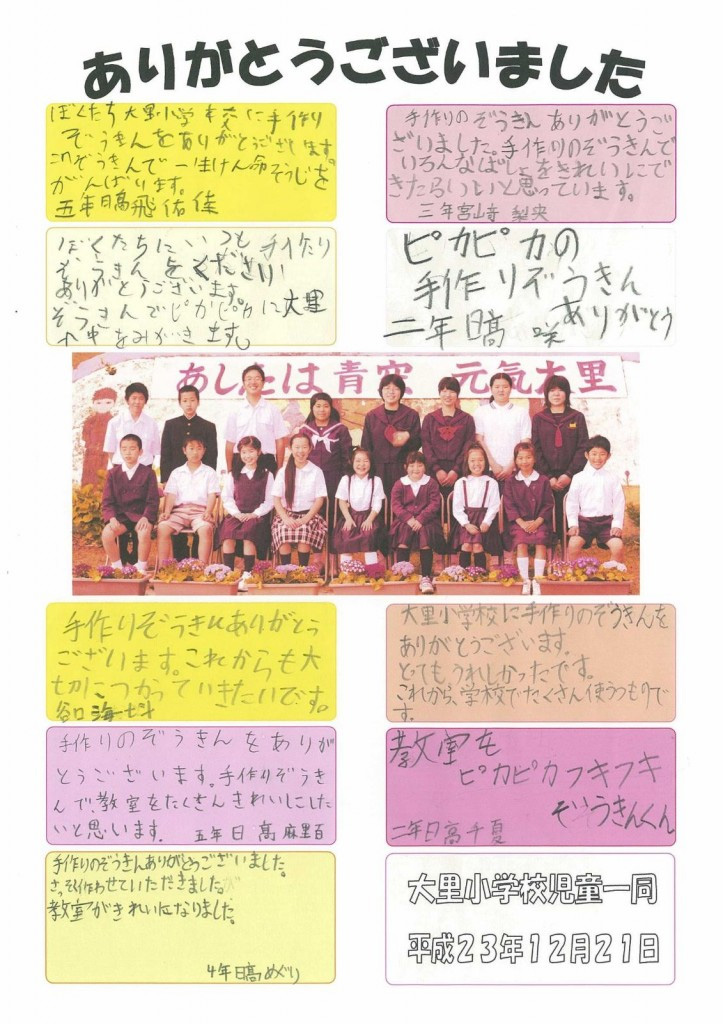 ありがとうございました
ぼくたち大里小学校に手作り
ぞうきんをありがとうございます。
このぞうきんで一生けん命そうじを
がんばります。
五年日高飛佑佳
手作りのぞうきんありがとうご
ざいました。手作りのぞうきんで
いろんなばしょをきれいにで
きたらいいと思っています。
三年宮崎 梨央
ぼくたちにいつも手作り
ぞうきんをください
ありがとうございます。
ぞうきんでピカピカに大里
をみがきます。
ピカピカの
手作りぞうきん
ありがとう
二年日高 咲
あしたは青空 元気大里
手作りぞうきんありがとう
ございます。これからも大
切につかっていきたいです。
谷口海斗
大里小学校に手作りのぞうきんを
ありがとうございます。
とてもうれしかったです。
これから、学校でたくさん使うつもので
す。
手作りのぞうきんをありが
とうございます。手作りぞうき
んで、教室をたくさんきれいにした
いと思います。 五年日高麻里百
教室を
ピカピカフキフキ
ぞうきんくん
二年日高千夏
手作りのぞうきんありがとうございました。
さっそく作わせていただきました。
教室がきれいになりました。
4年日高めぐり
大里小学校児童一同
平成23年12月21日